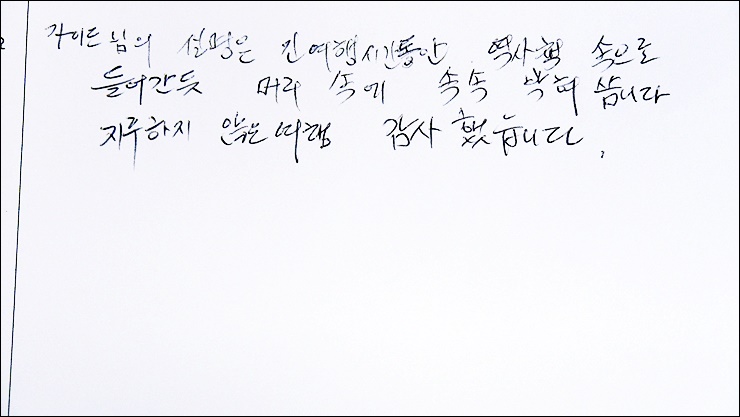 가이드님의 설명은 긴 여행시간동안 역사 속으로
들어간듯 머리 속에 속속 박혀 습니다
지루하지 않은 여행 감사 했습니다.